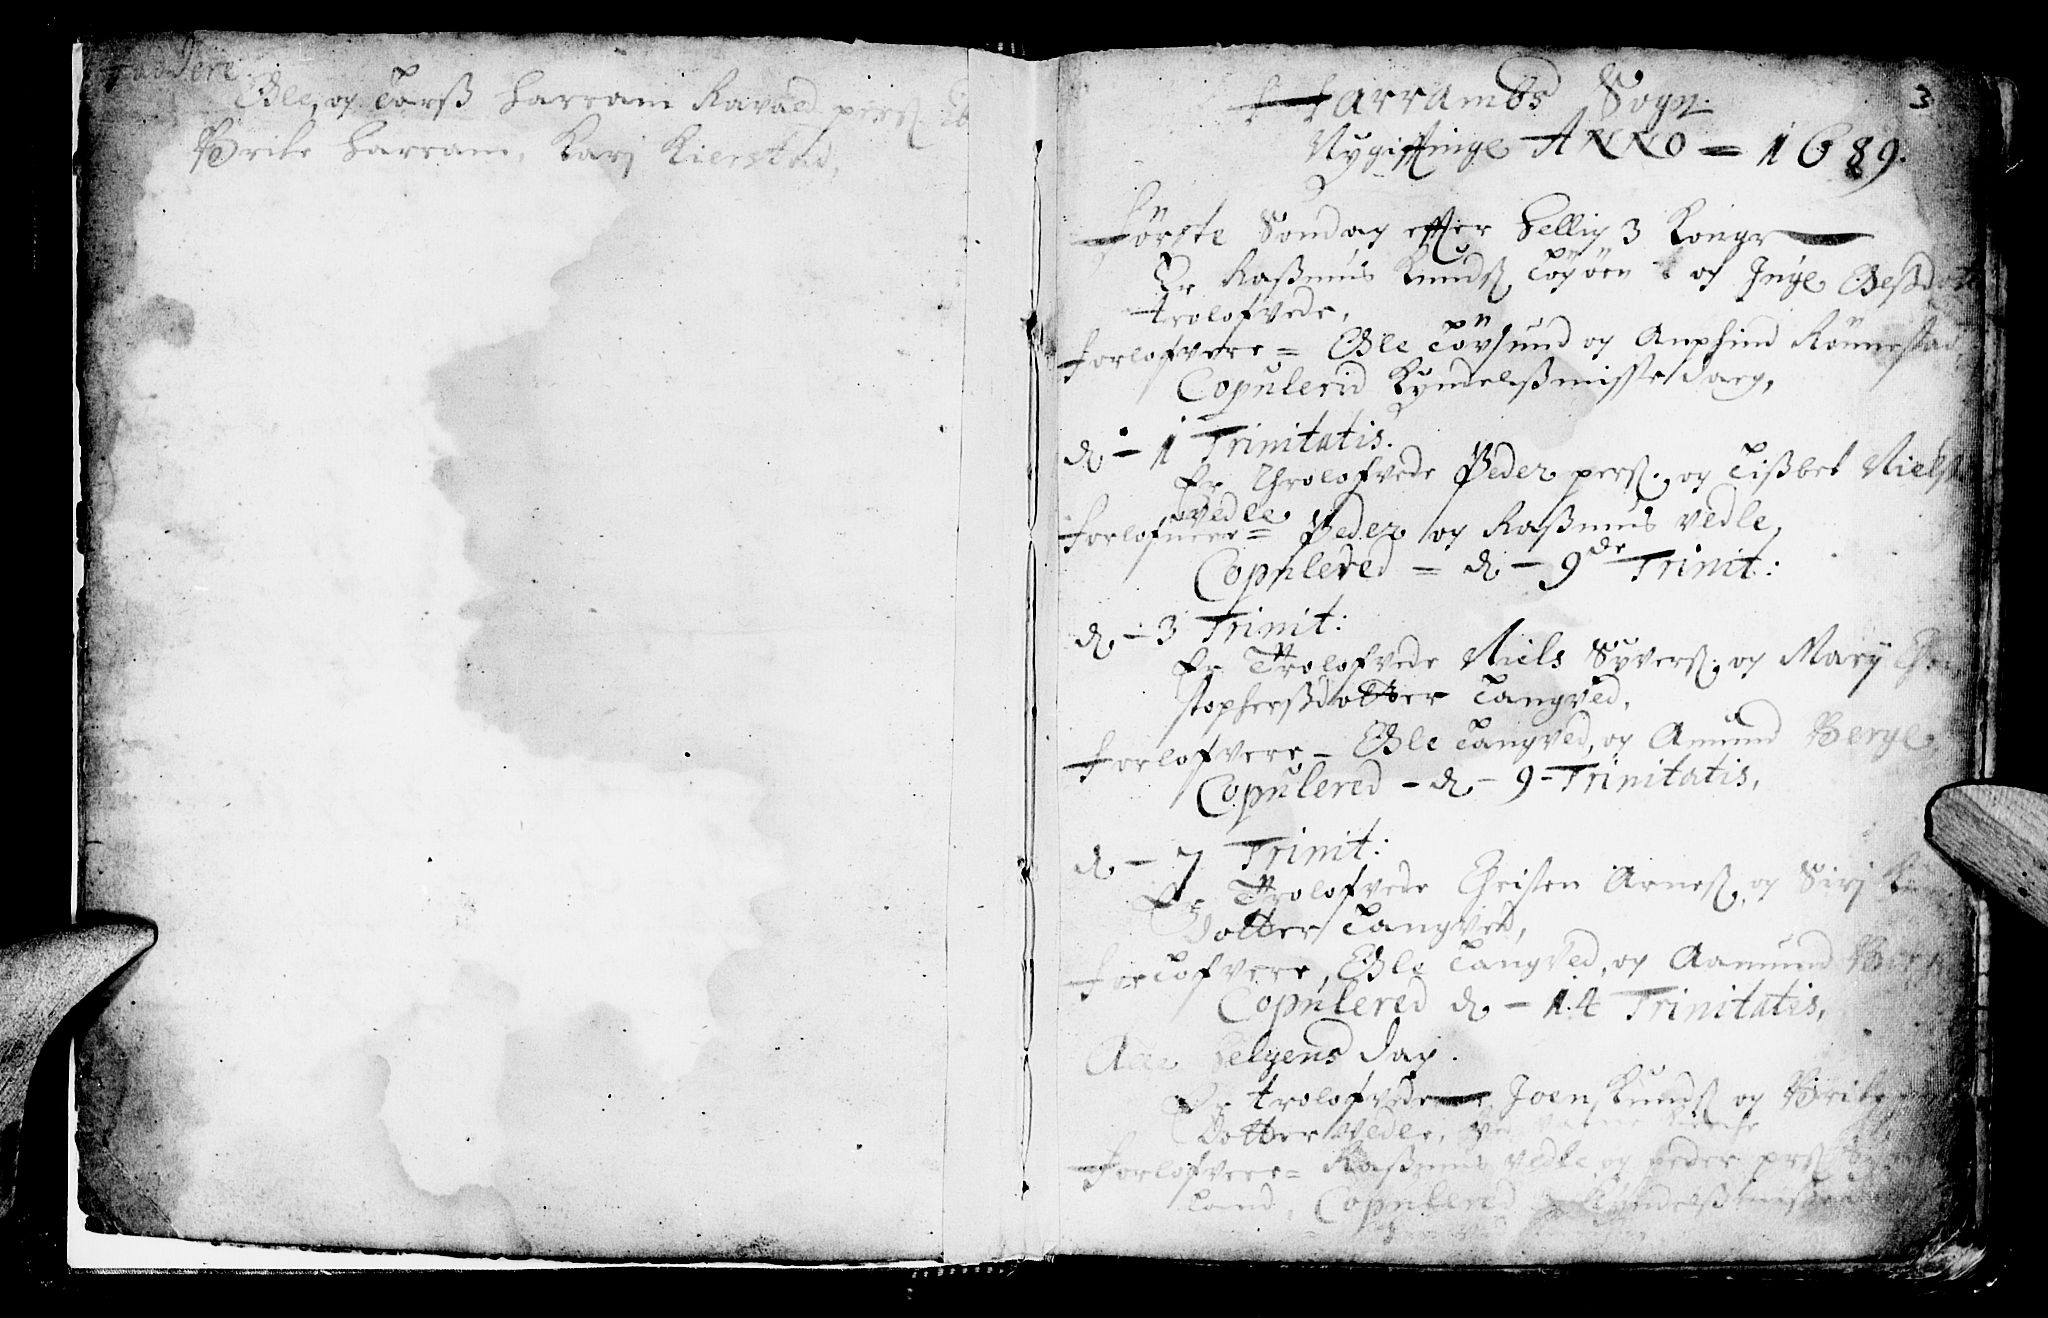 Faddere
Ole, og Larß Harram Ravæd perß ib
Brite Harram, Karj Kierstad,
3
Harrambs Sogn
Nygifftinge ANNO = 1689.
Förste Söndag effter Hellig 3 Konger
Er Raßmus Knudß Löföen og Inge Oleßdott
trolofvede,
Forlofvere = Ole Lövsund og Anphind Rönnestad
Copulerid Kyndelßmisse dag,
d. - 1 Trinitatis.
Er Throlofvede Peder perß. og Lißbet Nielß
Vedle
Forlofvere = Peder og Raßmus Vedle,
Copulered = d. - 9de Trinit:
d. - 3 Trinit:
Er Trolofvede Niels Syverß. og Marij Chri
stopherßdotter Langved,
Forlofvere - Ole Langved, og Amund Berge
Copulered - d. - 9 - Trinitatis,
d. - 7 Trinit:
Er Trolofvede Christen Arneß. og Sirj
Dotter Langved,
Forlofvere, Ole Langved, og Aamund
Copulered d. - 14 Trinitatis,
Alle Helgens dag.
Er trolofvede Joen Knudß og Brite
Dotter Vedle,
Forlofvere = Raßmus Vedle og peder prß
land, Copulered Kyndelßmisse